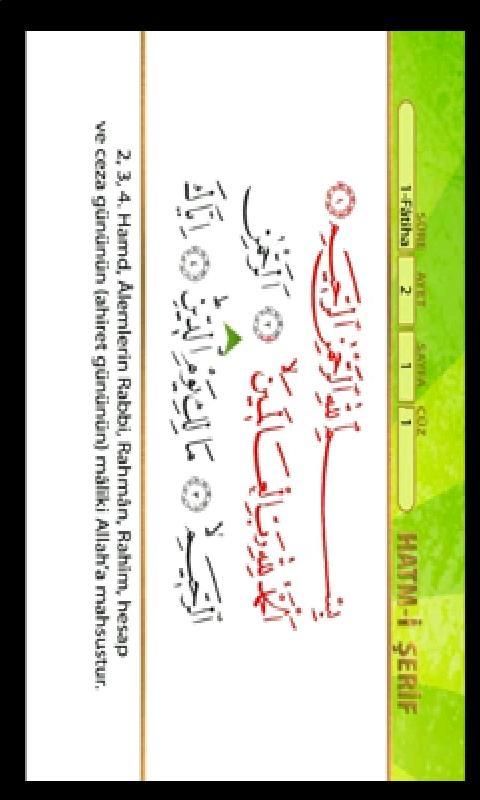 SÛRE AYET SAYFA CÜZ
1-Fâtiha 2 1 1
HATM-İ ŞERİF
بِسْمِ اللّٰهِ الرَّحْمٰنِ الرَّح۪يمِ ١
اَلْحَمْدُ لِلّٰهِ رَبِّ الْعَالَم۪ينَۙ ٢ اَلرَّحْمٰنِ
الرَّح۪يمِۙ ٣ مَالِكِ يَوْمِ الدّ۪ينِۜ ٤ اِيَّاكَ
2, 3, 4. Hamd, Âlemlerin Rabbi, Rahmân, Rahîm, hesap
ve ceza gününün (ahiret gününün) mâliki Allah'a mahsustur.